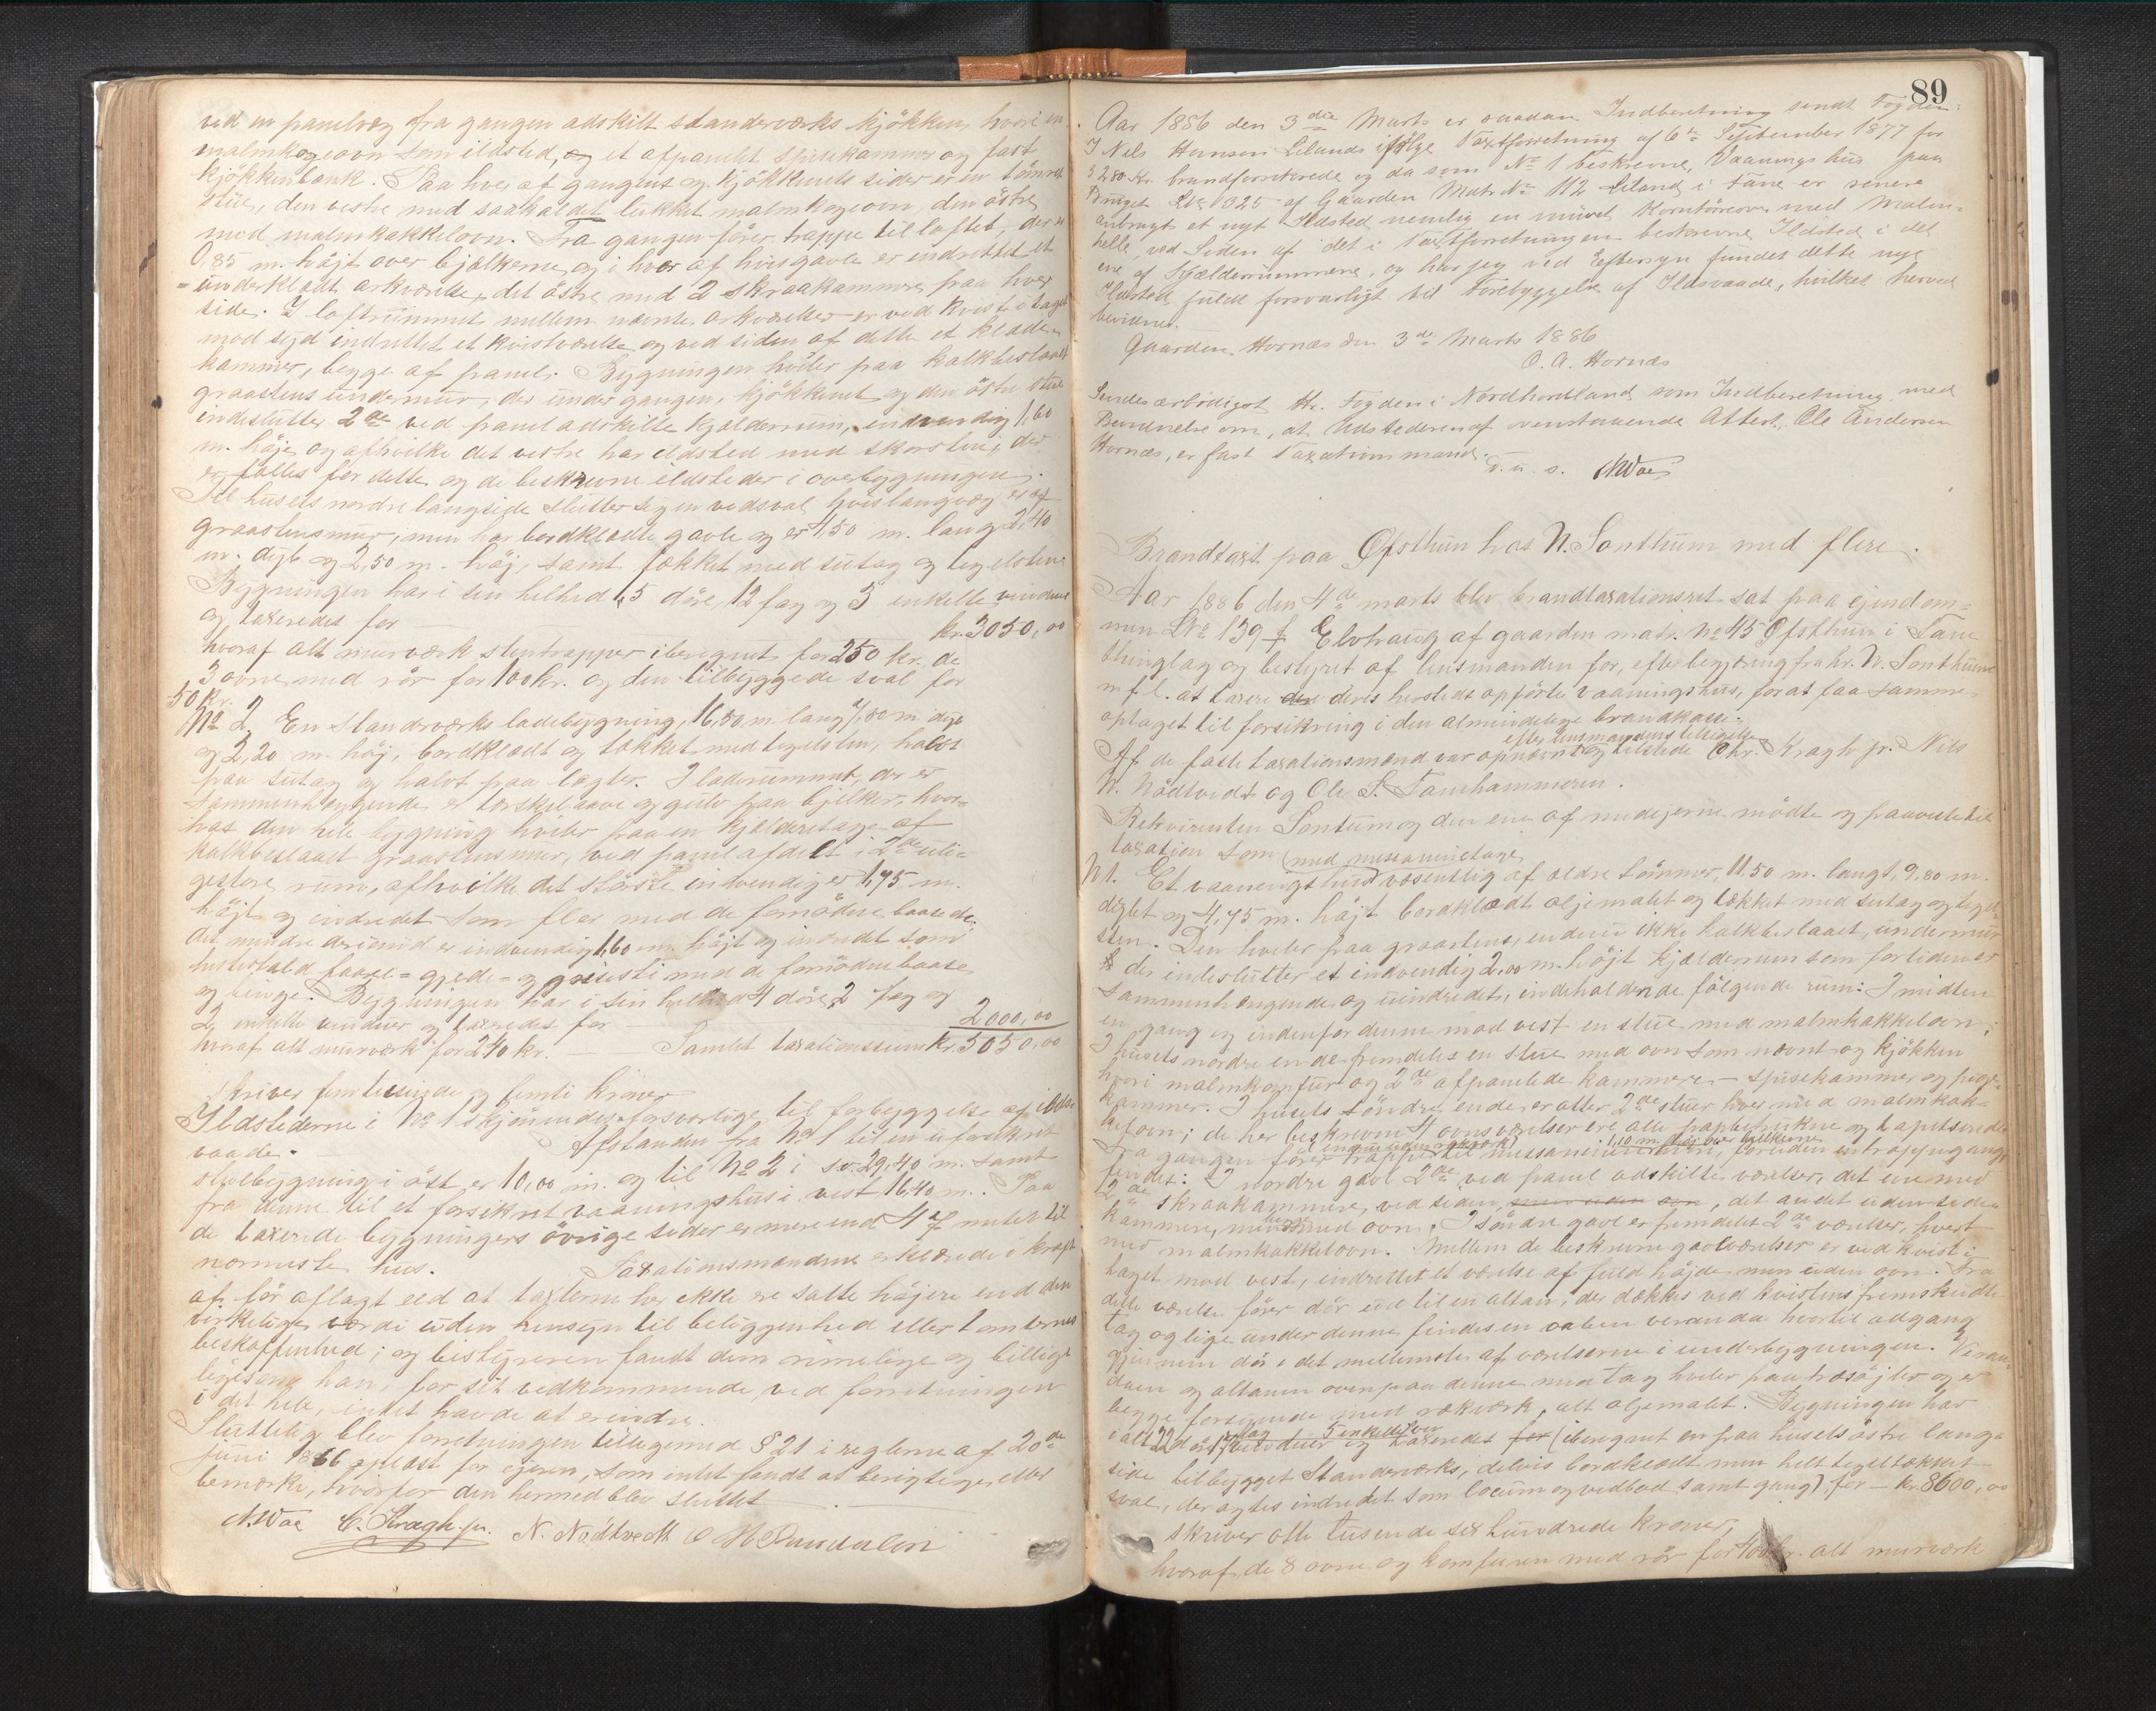 ved en panelvæg fra gangen adskilt standerværks kjökken, hvori en
malmkogeovn som ildsted, og et afpanelet spisekammer og fast
kjökkenbænk. Paa hver af gangens og kjökkenets sider er en tömret
stue, den vestre med saakaldet lukket malmkogeovn, den östre
med malmkakkelovn. Fra gangen förer trappe til loftet, der er
0,85 m. höjt over bjælkerne og i hver af hvis gavle er indrettet et
underklædt arkværelse, det östre med 2 skraakammere paa hver
side. I loftrummet mellem nævnte arkværelser er ved kvist i taget
mod syd indrettet et kvistværelse og ved siden af dette et klæde-
kammer, begge af panel. Bygningen hviler paa kalkbeslaaet
graastens undermur, der under gangen, kjökkenet og den östre stue
indslutter 2de ved panel adskilte kjælderrum, indvendig 1,60
m. höje og af hvilke det vestre har ildsted med skorsten, der
er fælles for dette og de beskrevne ildsteder i overbygningen.
Til husets nordre langside slutter sig en vedsval, hvis langvæg er af
graastensmur, men har bordklædte gavle og er 4,50 m. lang 2,40
m. dyb og 2,50 m. höj, samt tækket med sutag og tegelsten
Bygningen har i sin helhed 15 döre, 12 fag og 3 enkelte vinduer
og taxeredes for kr. 3050,00
hvoraf alt murværk stentrapper iberegnet for 250 kr. de
3 ovne med rör for 100 kr. og den tilbyggede sval for
50 kr.
No 2. En standerværks ladebygning, 16,80 m. lang 7,80 m. dyb
og 2,20 m. höj, bordklædt og tækket med tegelsten, halvt
paa sutag og halvt paa lægter. I laderummet, der er
sammenhængende er tærskelaave og gulv paa bjelker, hvor-
hos den hele bygning hviler paa en kjælderetage af
kalkbeslaaet graastensmur, ved panel afdelt i 2de uli-
gestore rum, af hvilke det störste indvendig er 1,75 m.
höjt og indredet som flor med de fornödne baase &c.
det mindre derimod er indvendig 1,60 m. höjt og indredet som
hestestald faare- gjede- og grisesti med de fornödne baase
og binge. Bygningen har i sin helhed 4 döre, 2 fag og
2 enkelte vinduer og taxeredes for 2000,00
hvoraf alt murværk for 240 kr. Samlet taxationssum kr. 5050,00
skriver femtusinde og femti kroner
Ildstederne i No 1 skjönnedes forsvarlige til forbyggelse af ilds-
vaade. Afstanden fra No 1 til en uforsikret
stolbebygning i öst er 10,00 m. og til No 2 i s.v. 29,40 m. samt
fra denne til et forsikret vaaningshus i vest 16,40 m. Paa
de taxerede bygningers övrige sider er mere end 47 meter til
nærmeste hus. Taxationsmændene erklærede i kraft
af för aflagt eed at taxterne her ikke ere satte höjere end den
virkelige værdi uden hensyn til beliggenhed eller tomternes
beskaffenhed; og bestyreren fandt dem rimelige og billige
ligesom han, for sit vedkommende, ved forretningen
i det hele, intet havde at erindre.
Sluttelig blev forretningen tilligemed § 21 i reglerne af 20de
juni 1866 oplæst for ejeren, som intet fandt at berigtige eller
bemærke, hvorfor den hermed blev sluttet
N. Wae C. Kragh jr. N. Nödtvedt
89
Aar 1886 den 3die Marts er saadan Indberetning sendt Fogden:
I Nels Hansen Lilands ifølge Taxtforretning af 6te September 1877 for
3280 Kr. brandforsikrede og da som No 1 beskrevne, Vaaningshus paa
Bruget Lno 1025 af Gaarden Matr No 112 Liland i Fane er senere
anbragt et nyt Ildsted nemlig en muret Korntørreovn med Malm-
helle, ved Siden af det i Taxtforretningen beskrevne Ildsted i det
ene af Kjælderrummene, og har jeg ved Eftersyn fundet dette nye
Ildsted fuldt forsvarligt til Forebyggelse af Ildsvaade, hvilket herved
bevidnes.
Gaarden Hornæs den 3de Marts 1886
O. A. Hornæs
Sendes ærbödigst Hr. Fogden i Nordhordland som Indberetning med
Bevidnelse om, at Udstederen af ovenstaaende Attest, Ole Andersen
Hornæs, er fast Taxationsmand.
D. u. s. N. Wae
Brandtaxt paa Øfsthun hos N. Sonthum med flere.
Aar 1886 den 4de marts blev brandtaxationsret sat paa ejendom-
men LNo 139 f Elvhaug af gaarden matr. No 45 Øfsthun i Fane
thinglag og bestyret af lensmanden for, efter begjæring fra hr. N. Sonthum
m. fl. at taxere den deres hersteds opförte vaaningshus, for at faa samme
optaget til forsikring i den almindelige brandkasse.
efter lensmandens tilsigelse
Af de faste taxationsmænd var opnævnt og tilstede Chr. Kragh jr. Nils
N. Nödtvedt og Ole S. Fanehammeren.
Rekvirenten Sontum og den ene af medejerne mödte og paaviste til
taxation som (med messaninetage)
N1. Et vaaningshus væsentlig af ældre tömmer, 11.50 m. langt, 9,80 m.
dybt og 4,75 m. höjt bordklædt oljemalet og tækket med sutag og tegel-
sten. Den hviler paa graastens, endnu ikke kalkbeslaaet, undermur
der indeslutter et indvendig 2,00 m. höjt kjælderrum som fortiden er
sammenhængende og uindredet, indeholdende fölgende rum: I midten
en gang og indenfor denne mod vest en stue med malmkakkelovn;
I husets nordre ende fremdeles en stue med ovn som nævnt og kjökken
hvori malmkomfur og 2de afpanelede kammere – spisekammer og pige-
kammer. I husets söndre ende er atter 2de stuer hver med malmkak-
kelovn; de her beskrevne 4 ovnsværelser ere alle papbetrukne og tapetserede
1,10 m. höj over bjelkerne
Fra gangen förer trappe til messanin
findes: I nordre gavl 2de ved panel adskilte værelser, det ene med
2de skraakammere ved siden, , det andet uden side-
kammere, men begge med ovn. I söndre gavl er fremdeles 2de værelser, hvert
med malmkakkelovn. Mellem de beskrevne gavlværelser er ved kvist i
taget mod vest, indrettet et værelse af fuld höjde men uden ovn. Fra
dette værelse förer dör ud til en altan, der dækkes ved kvistens fremskudte
tag og lige under denne findes en aaben veranda hvortil adgang
gjennem dör i det mellemste af værelserne i underbygningen. Veran-
daen og altanen ovenpaa denne med tag hviler paa træsöjler og er
begge forsynede med rækværk, alt oljemalet. Bygningen har
fag 5 enkelte
i alt 22 döre, vinduer og taxeredes for (iberegnet en paa husets östre lang-
side tilbygget Standerværks, delvis bordklædt men helt tegltækket
sval, der agtes indredet som locum og vedbod samt gang) for – kr. 8600,00
skriver otte tusende sex hundrede kroner,
hvoraf de 8 ovne og komfuren med rör for alt murværk